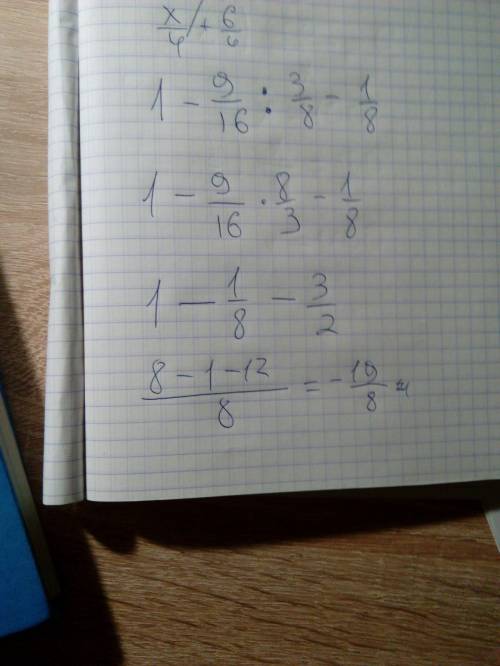 x/4 + 6/
1 - 9/16 : 3/8 - 1/8
1 - 9/16 · 8/3 - 1/8
1 - 1/8 - 3/2
(8 - 1 - 12)/8 = - 19/8 =